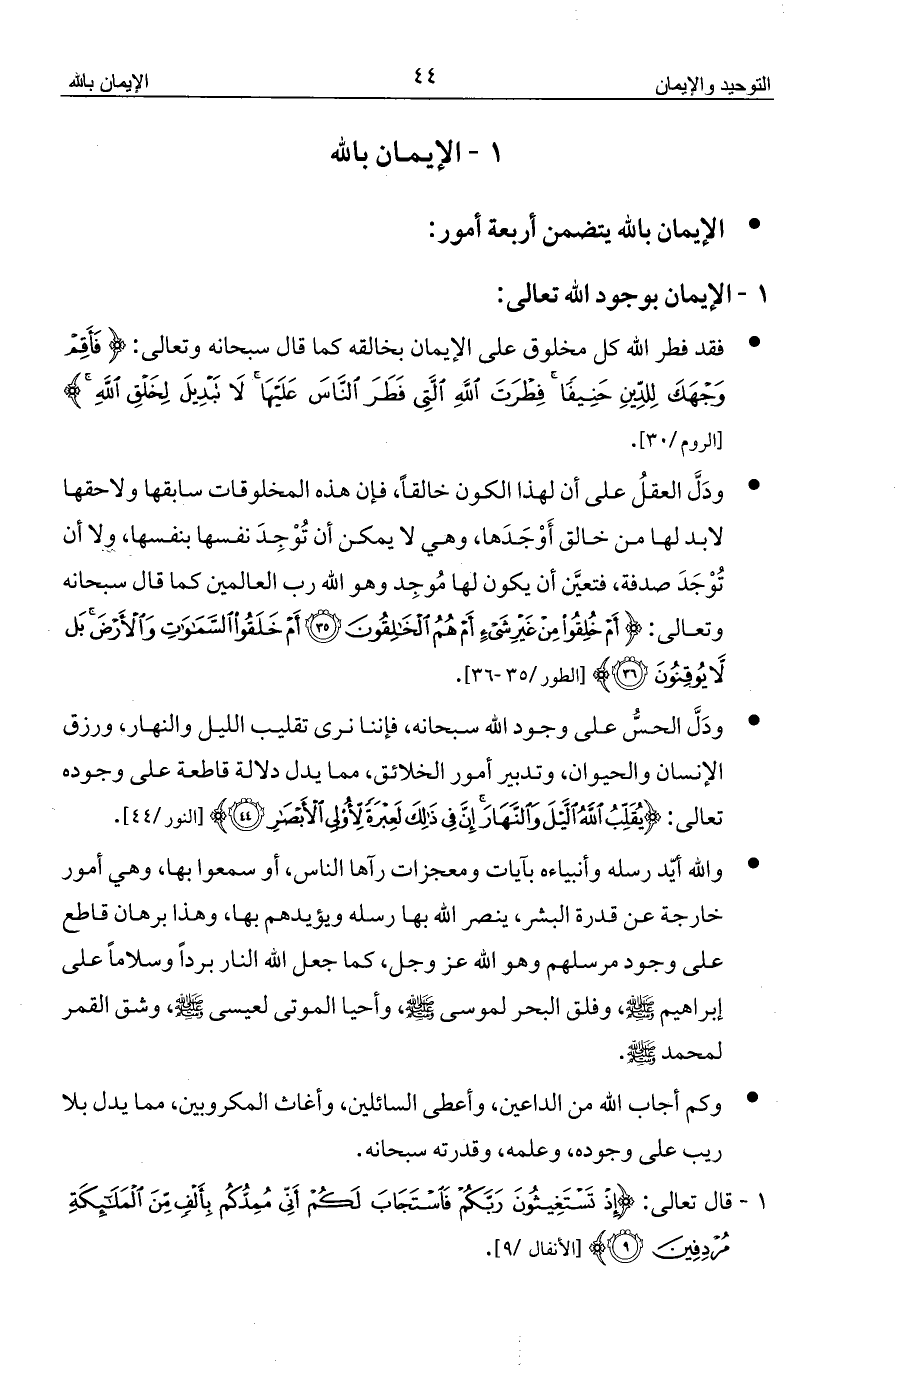 التوحيد والإيمان ٤٤ الإيمان بالله
١ - الإيمـان بالله
• الإيمان بالله يتضمن أربعة أمور:
١ - الإيمان بوجود الله تعالى:
• فقد فطر الله كل مخلوق على الإيمان بخالقه كما قال سبحانه وتعالى: ﴿ فَأَقِمْ
وَجْهَكَ لِلدِّينِ حَنِيفًا ۚ فِطْرَتَ ٱللَّهِ ٱلَّتِى فَطَرَ ٱلنَّاسَ عَلَيْهَا ۚ لَا تَبْدِيلَ لِخَلْقِ ٱللَّهِ ۚ ﴾
[الروم/٣٠].
• ودَلَّ العقلُ على أن لهذا الكون خالقاً، فإن هذه المخلوقات سابقها ولاحقها
لابد لها من خالق أَوْجَدَها، وهي لا يمكن أن تُوْجِدَ نفسها بنفسها، ولا أن
تُوْجَدَ صدفة، فتعيَّن أن يكون لها مُوجِد وهو الله رب العالمين كما قال سبحانه
وتعـالى: ﴿ أَمْ خُلِقُوا۟ مِنْ غَيْرِ شَىْءٍ أَمْ هُمُ ٱلْخَـٰلِقُونَ ٣٥ أَمْ خَلَقُوا۟ ٱلسَّمَـٰوَٰتِ وَٱلْأَرْضَ ۚ بَل
لَّا يُوقِنُونَ ٣٦ ﴾ [الطور/٣٥-٣٦].
• ودَلَّ الحسُّ على وجود الله سبحانه، فإننا نرى تقليب الليل والنهار، ورزق
الإنسان والحيوان، وتدبير أمور الخلائق، مما يدل دلالة قاطعة على وجوده
تعالى: ﴿ يُقَلِّبُ ٱللَّهُ ٱلَّيْلَ وَٱلنَّهَارَ ۚ إِنَّ فِى ذَٰلِكَ لَعِبْرَةً لِّأُو۟لِى ٱلْأَبْصَـٰرِ ٤٤ ﴾ [النور/٤٤].
• والله أيّد رسله وأنبياءه بآيات ومعجزات رآها الناس، أو سمعوا بها، وهي أمور
خارجة عن قدرة البشر، ينصر الله بها رسله ويؤيدهم بها، وهذا برهان قاطع
على وجود مرسلهم وهو الله عز وجل، كما جعل الله النار برداً وسلاماً على
إبراهيم ﷺ، وفلق البحر لموسى ﷺ، وأحيا الموتى لعيسى ﷺ، وشق القمر
لمحمد ﷺ.
• وكم أجاب الله من الداعين، وأعطى السائلين، وأغاث المكروبين، مما يدل بلا
ريب على وجوده، وعلمه، وقدرته سبحانه.
١ - قال تعالى: ﴿ إِذْ تَسْتَغِيثُونَ رَبَّكُمْ فَٱسْتَجَابَ لَكُمْ أَنِّى مُمِدُّكُم بِأَلْفٍ مِّنَ ٱلْمَلَـٰٓئِكَةِ
مُرْدِفِينَ ٩ ﴾ [الأنفال /٩].